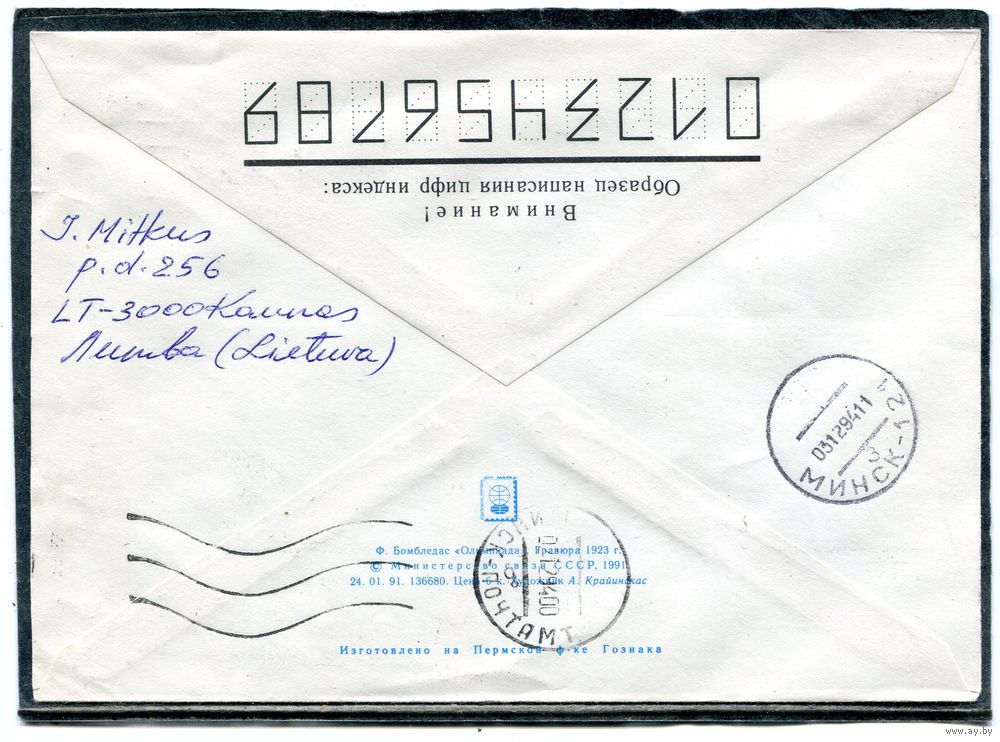 0123456789
Образец написания цифр индекса:
Внимание!
J. Mitkus
p.d. 256
LT-3000 Kaunas
Литва (Lietuva)
03129411
3
МИНСК-12
Ф. Бомбледас «Олимпиада». Гравюра 1923 г.
© Министерство связи СССР, 1991
24. 01. 91. 136680. Цена к. Художник А. Крайинскас
ПОЧТАМТ
Изготовлено на Пермской ф-ке Гознака
www.ay.by